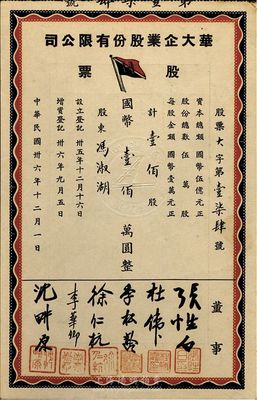 華大企業股份有限公司
股票
股票大字第壹柒肆號
資本總額 國幣伍億元正
股份總數 伍萬股
每股金額 國幣壹萬元正
計壹佰股
國幣壹佰萬圓整
股東 馮淑湖
設立登記 卅五年十二月十六
增資登記 卅六年九月五日
中華民國卅六年十二月一日
董事
張性白
杜偉
李松齡
徐仁杭
李華卿